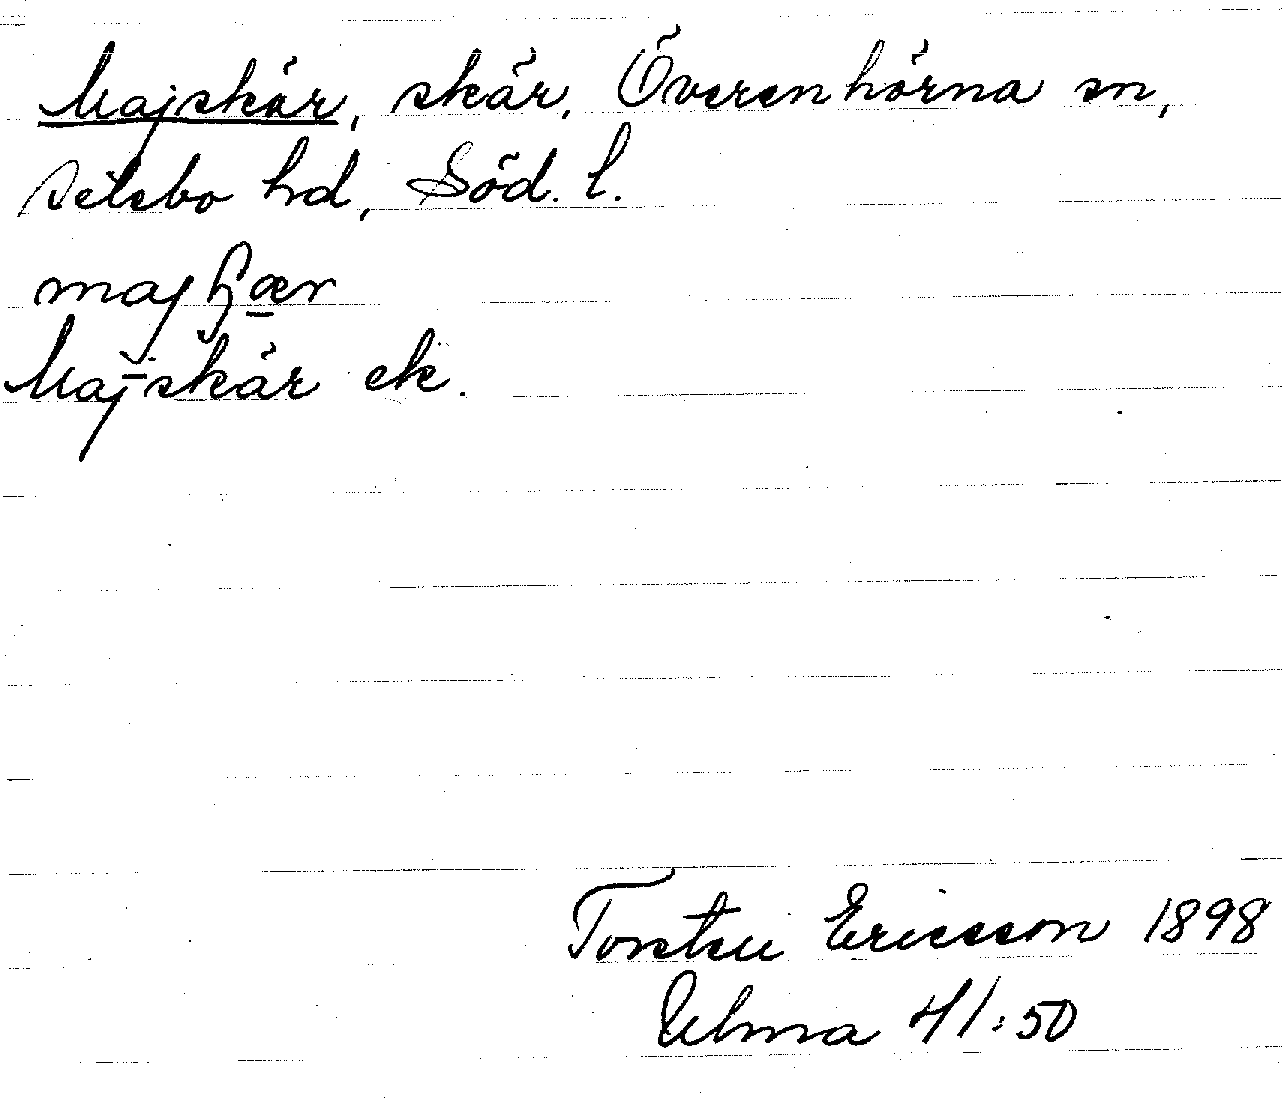 Majskär, skär, Överenhörna sn,
Selebo hd, Söd. l.
Majskär ek.
Torsten Ericsson 1898
Ulma 41:50